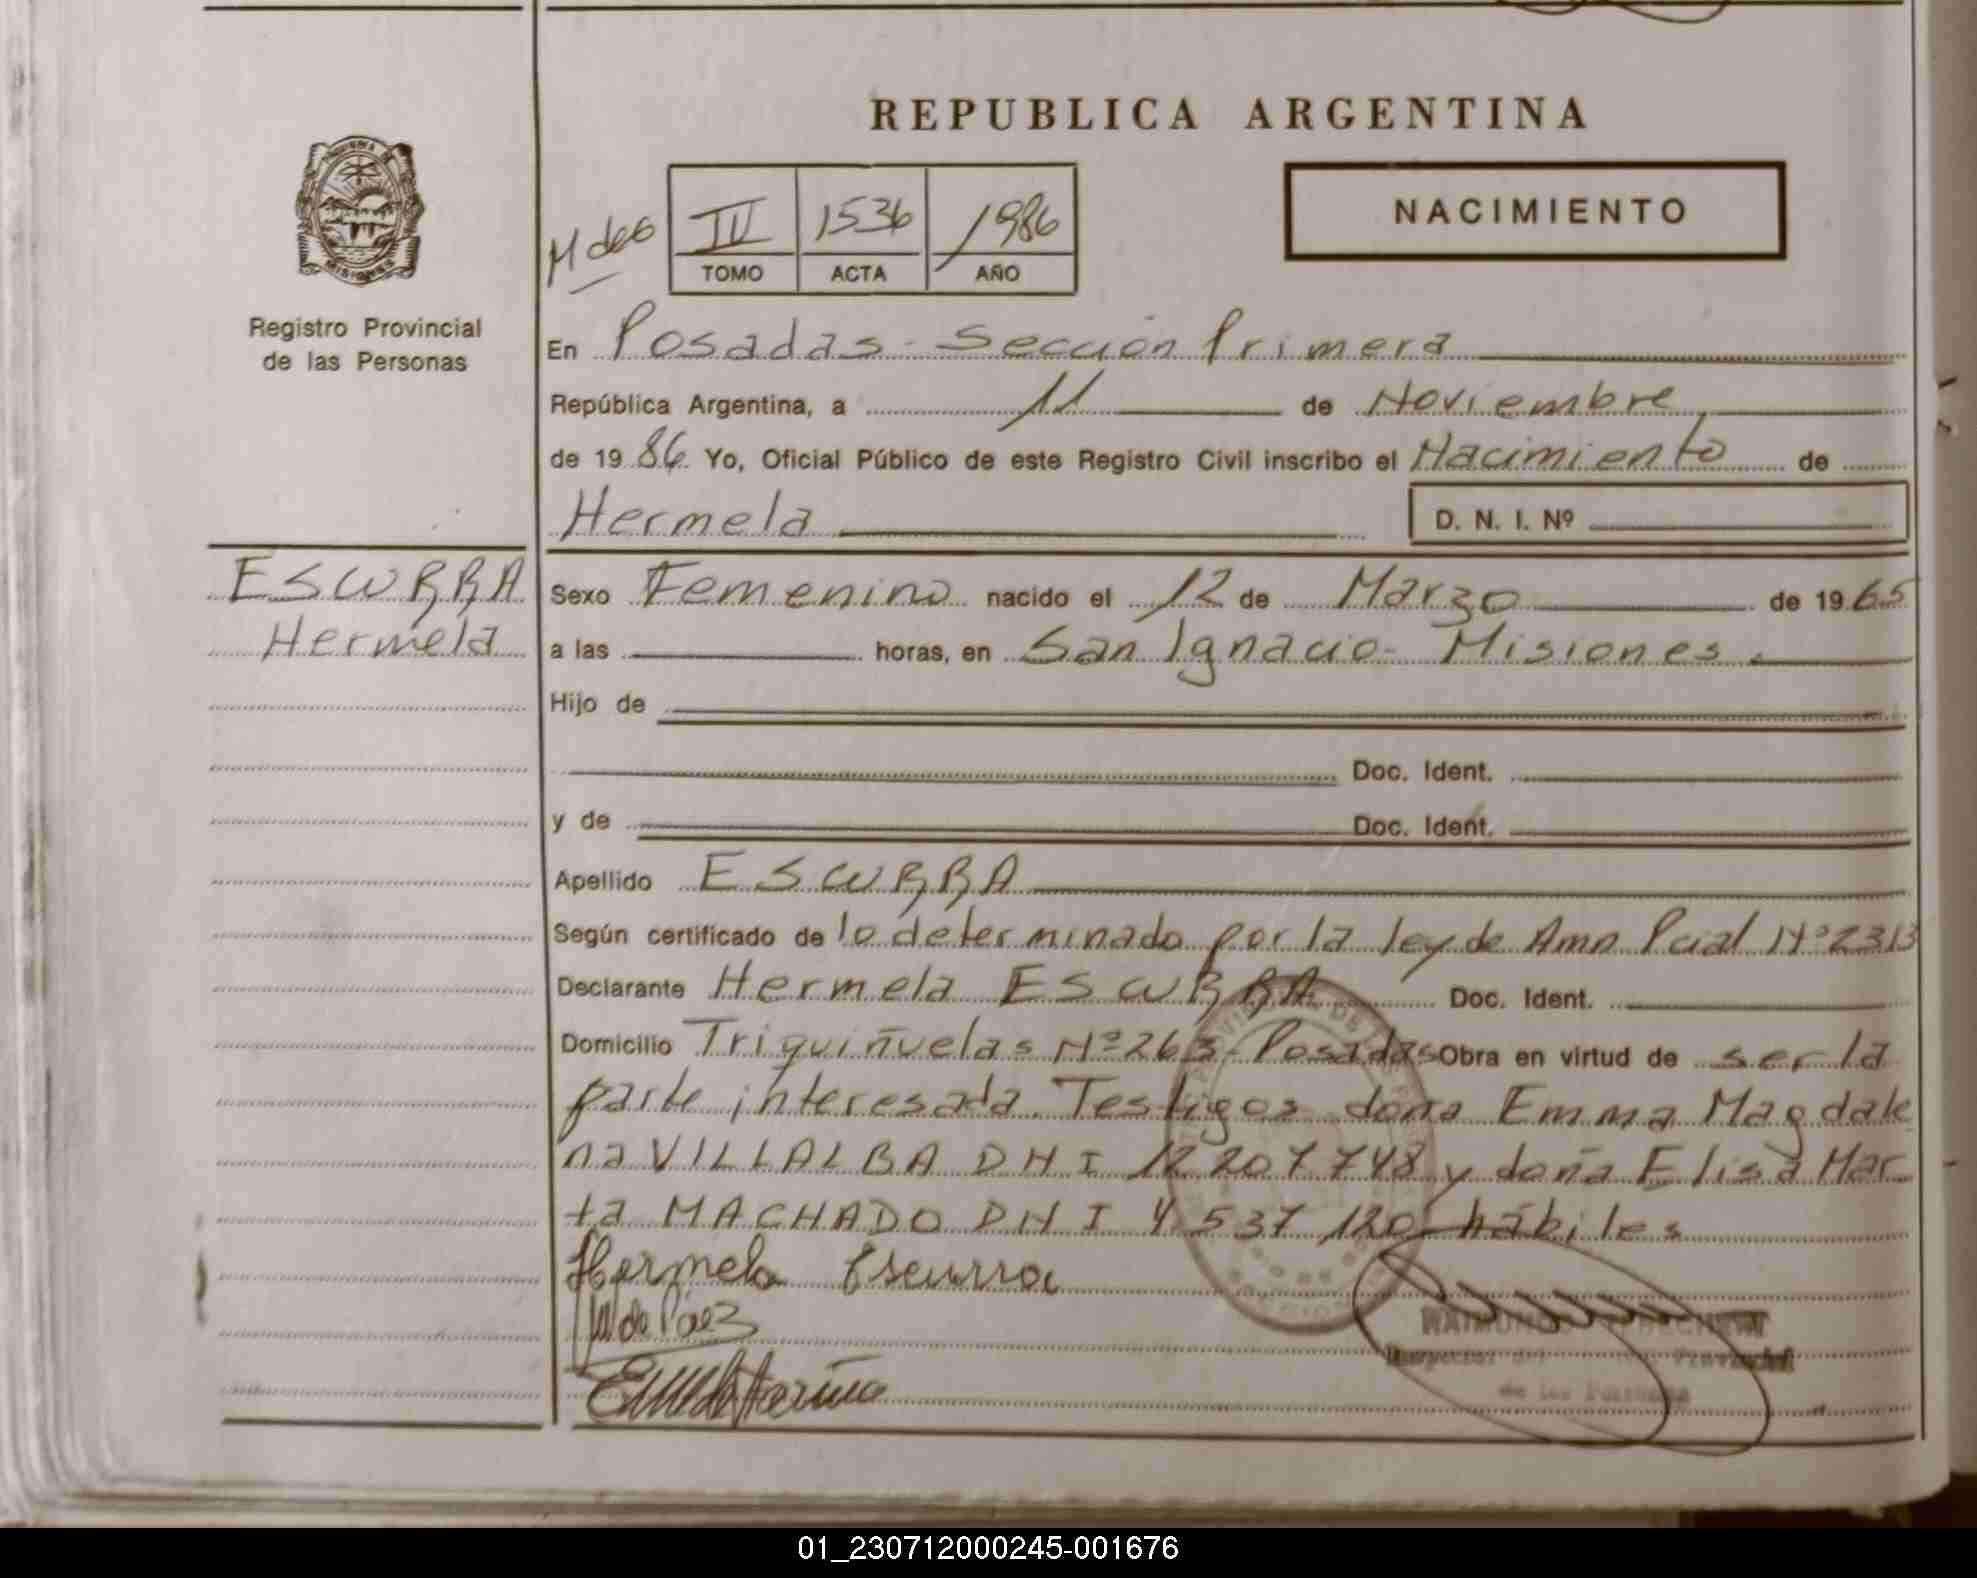 REPUBLICA ARGENTINA
NACIMIENTO
IV 1536 1986
TOMO ACTA AÑO
MISIONES
Registro Provincial
de las Personas
En Posadas - Sección Primera
República Argentina, a 11 de Noviembre
de 1986 Yo, Oficial Público de este Registro Civil inscribo el Nacimiento de
Hermela D. N. I. Nº
ESCURRA
Hermela
Sexo Femenino nacido el 12 de Marzo de 1965
a las horas, en San Ignacio - Misiones.
Hijo de
Doc. Ident.
y de Doc. Ident.
Apellido ESCURRA
Según certificado de lo determinado por la ley de Amn Pcial Nº 2313
Declarante Hermela ESCURRA Doc. Ident.
Domicilio Triquiñuelas Nº 263 - Posadas Obra en virtud de ser la
parte interesada. Testigos doña Emma Magdale
na VILLALBA DNI 12 207 748 y doña Elisa Mar
ta MACHADO DNI 4.537 120 hábiles
Hermela Escurra
de Páez
Provincial
de las Personas
01_230712000245-001676